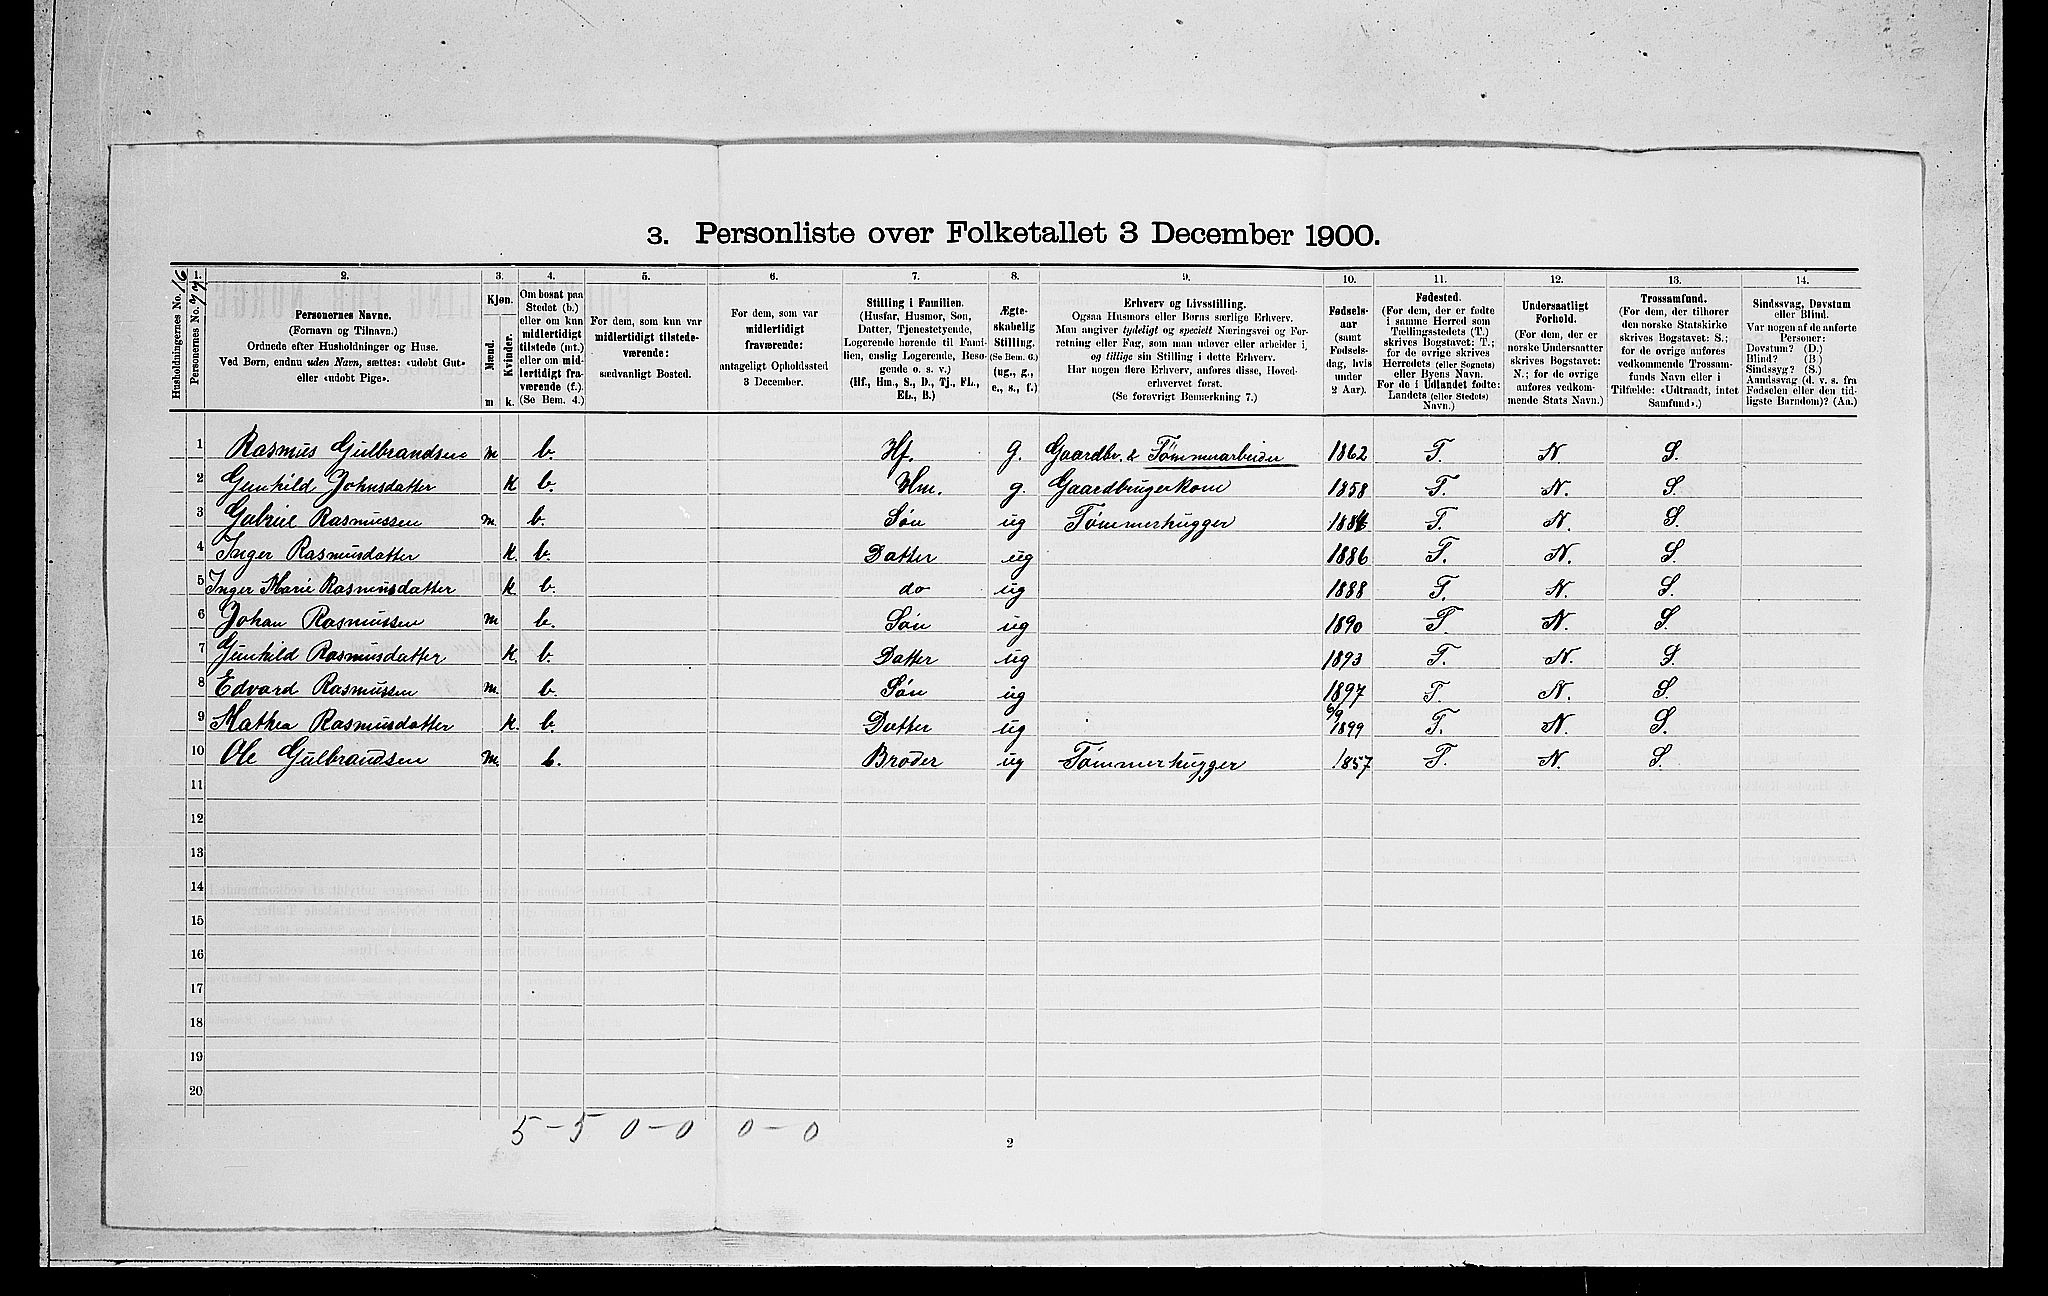 3. Personliste over Folketallet 3 December 1900.
Husholdningernes No. 16
1. Personernes No.
2. Personernes Navne. (Fornavn og Tilnavn.) Ordnede efter Husholdninger og Huse. Ved Børn, endnu uden Navn, sættes: «udøbt Gut» eller «udøbt Pige».
3. Kjøn. Mænd. m Kvinder. k.
4. Om bosat paa Stedet (b.) eller om kun midlertidigt tilstede (mt.) eller om midlertidigt fraværende (f.). (Se Bem. 4.)
5. For dem, som kun var midlertidigt tilstedeværende: sædvanligt Bosted.
6. For dem, som var midlertidigt fraværende: antageligt Opholdssted 3 December.
7. Stilling i Familien. (Husfar, Husmor, Søn, Datter, Tjenestetyende, Logerende hørende til Familien, enslig Logerende, Besøgende o. s. v.) (Hf., Hm., S., D., Tj., FL., EL., B.)
8. Ægteskabelig Stilling. (Se Bem. 6.) (ug., g., e., s., f.)
9. Erhverv og Livsstilling. Ogsaa Husmors eller Børns særlige Erhverv. Man angiver tydeligt og specielt Næringsvei og Forretning eller Fag, som man udøver eller arbeider i, og tillige sin Stilling i dette Erhverv. Har nogen flere Erhverv, anføres disse, Hovederhvervet først. (Se forøvrigt Bemerkning 7.)
10. Fødselsaar (samt Fødselsdag, hvis under 2 Aar).
11. Fødested. (For dem, der er fødte i samme Herred som Tællingsstedets (T.) skrives Bogstavet: T.; for de øvrige skrives Herredets (eller Sognets) eller Byens Navn. For de i Udlandet fødte: Landets (eller Stedets) Navn.)
12. Undersaatligt Forhold. (For dem, der er norske Undersaatter skrives Bogstavet: N.; for de øvrige anføres vedkommende Stats Navn.)
13. Trossamfund. (For dem, der tilhører den norske Statskirke skrives Bogstavet: S.; for de øvrige anføres vedkommende Trossamfunds Navn eller i Tilfælde: «Udtraadt, intet Samfund».)
14. Sindssvag, Døvstum eller Blind. Var nogen af de anførte Personer: Døvstum? (D.) Blind? (B.) Sindssyg? (S.) Aandssvag (d. v. s. fra Fødselen eller den tidligste Barndom)? (Aa.)
1 Rasmus Gulbrandsen m b. Hf. g. Gaardbr. & Tømmerarbeider 1862 T. N. S.
2 Gunhild Johnsdatter K b. Hm. g. Gaardbrugerkone 1858 T. N. S.
3 Gabriel Rasmussen m. b. Søn ug Tømmerhugger 1884 T. N. S.
4 Inger Rasmusdatter K. b. Datter ug 1886 T. N. S.
5 Inger Marie Rasmusdatter K b. do ug 1888 T. N. S.
6 Johan Rasmussen m b. Søn ug 1890 T. N. S.
7 Gunhild Rasmusdatter K. b. Datter ug 1893 T. N. S.
8 Edvard Rasmussen m. b. Søn ug 1897 T. N. S.
9 Mathea Rasmusdatter K. b. Datter ug 6/9 1899 T. N. S.
10 Ole Gulbrandsen m. b. Broder ug Tømmerhugger 1857 T. N. S.
11
12
13
14
15
16
17
18
19
20
5 – 5 0 – 0 0 – 0
2